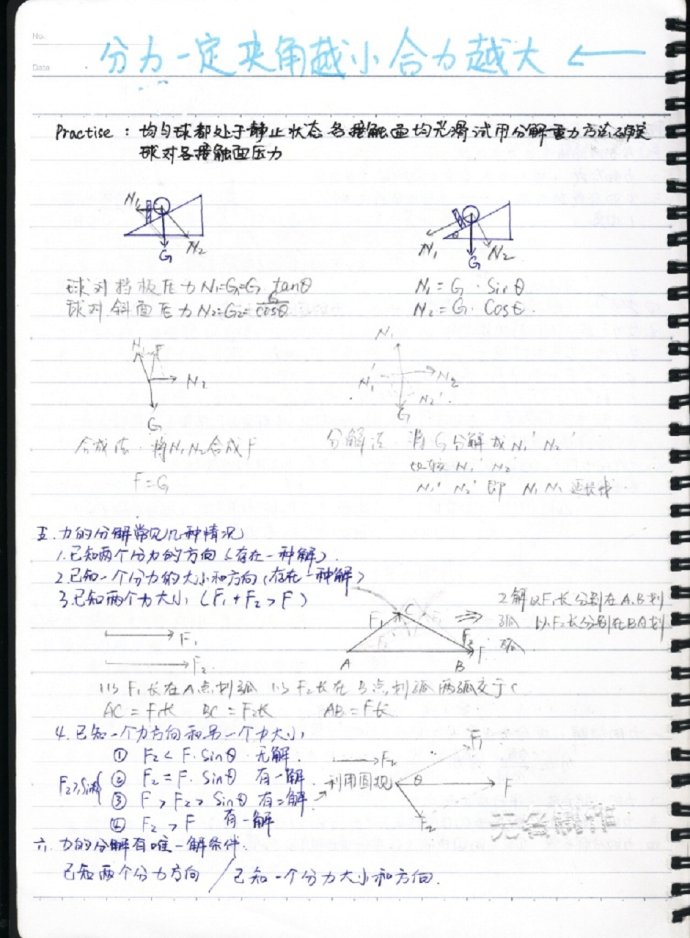 No.
Date
分力一定夹角越小合力越大
Practise：均匀球都处于静止状态各接触面均光滑试用分解重力方法确定
球对各接触面压力
N1 N2 G
N1 N2 G
球对挡板压力N1=G1=G tanθ
球对斜面压力N2=G2=G/cosθ
N1=G·Sinθ
N2=G·Cosθ.
N1 F N2 G
N1 N1' N2 N2' G
合成法：将N1 N2合成F
F=G
分解法：将G分解成N1' N2'
比较N1' N2'
N1' N2' 即 N1 N2 延长线
五.力的分解常见几种情况
1.已知两个分力的方向（存在一种解）.
2.已知一个分力的大小和方向（存在一种解）
3.已知两个力大小（F1+F2>F）
F1
F2.
F1 C F2 A B F
2解以F1长分别在A.B划
弧 以F2长分别在BA划
弧
以F1长在A点划弧 以F2长在B点划弧 两弧交于C
AC=F1长 BC=F2长 AB=F长
4.已知一个力方向和另一个力大小
① F2<F·Sinθ 无解.
② F2=F·Sinθ 有一解
③ F>F2>Sinθ 有二解
④ F2>F 有一解
利用圆规
F2 F1 θ F F2
六.力的分解有唯一解条件.
已知两个分力方向／已知一个分力大小和方向.